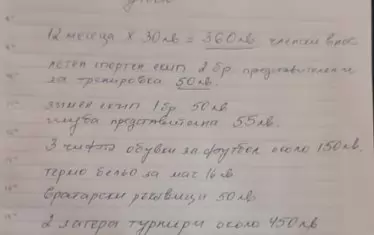 12 месеца х 30лв = 360лв членски внос
летен спортен екип 2 бр. представителен и
за тренировка 50лв.
зимен екип 1бр 50лв
клуба представителна 55лв.
3 чифта обувки за футбол около 150лв.
термо бельо за мач 16лв
вратарски ръкавици 50лв
2 лагера турнири около 450лв